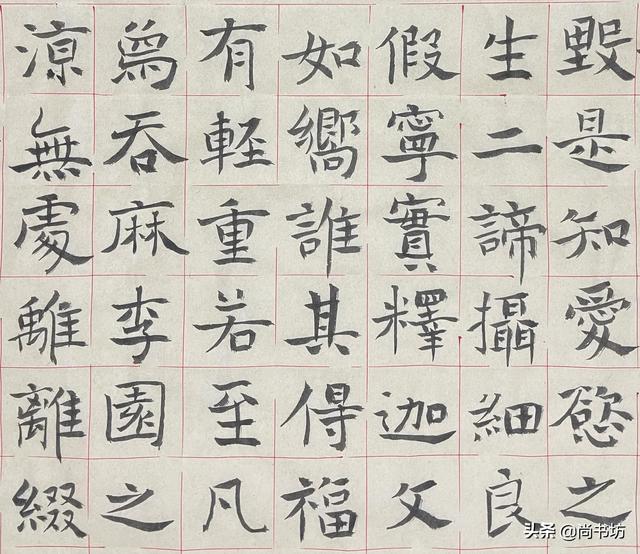 毀是知愛慾之
生二諦攝細良
假寧實釋迦父
如嚮誰其得福
有輕重若至凡
爲吞麻李園之
涼無處離離綴
头条 @尚书坊